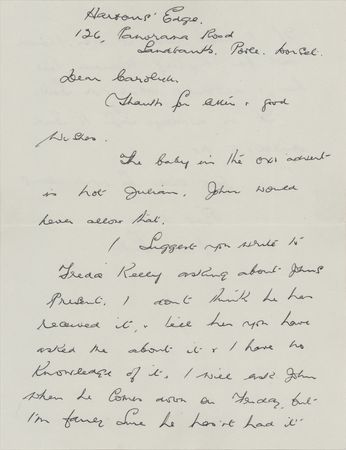 Harbour's Edge.
126, Panorama Road
Sandbanks. Poole. Dorset.
Dear
Thanks for letter & good
Wishes.
The baby in the oxo advert
is not Julian. John would
never allow that.
I suggest you write to
Freda Kelly asking about John's
Present. I don't think he has
received it, & tell her you have
asked me about it & I have no
knowledge of it. I will ask John
when he comes down on Tuesday, but
I'm fairly sure he hasn't had it